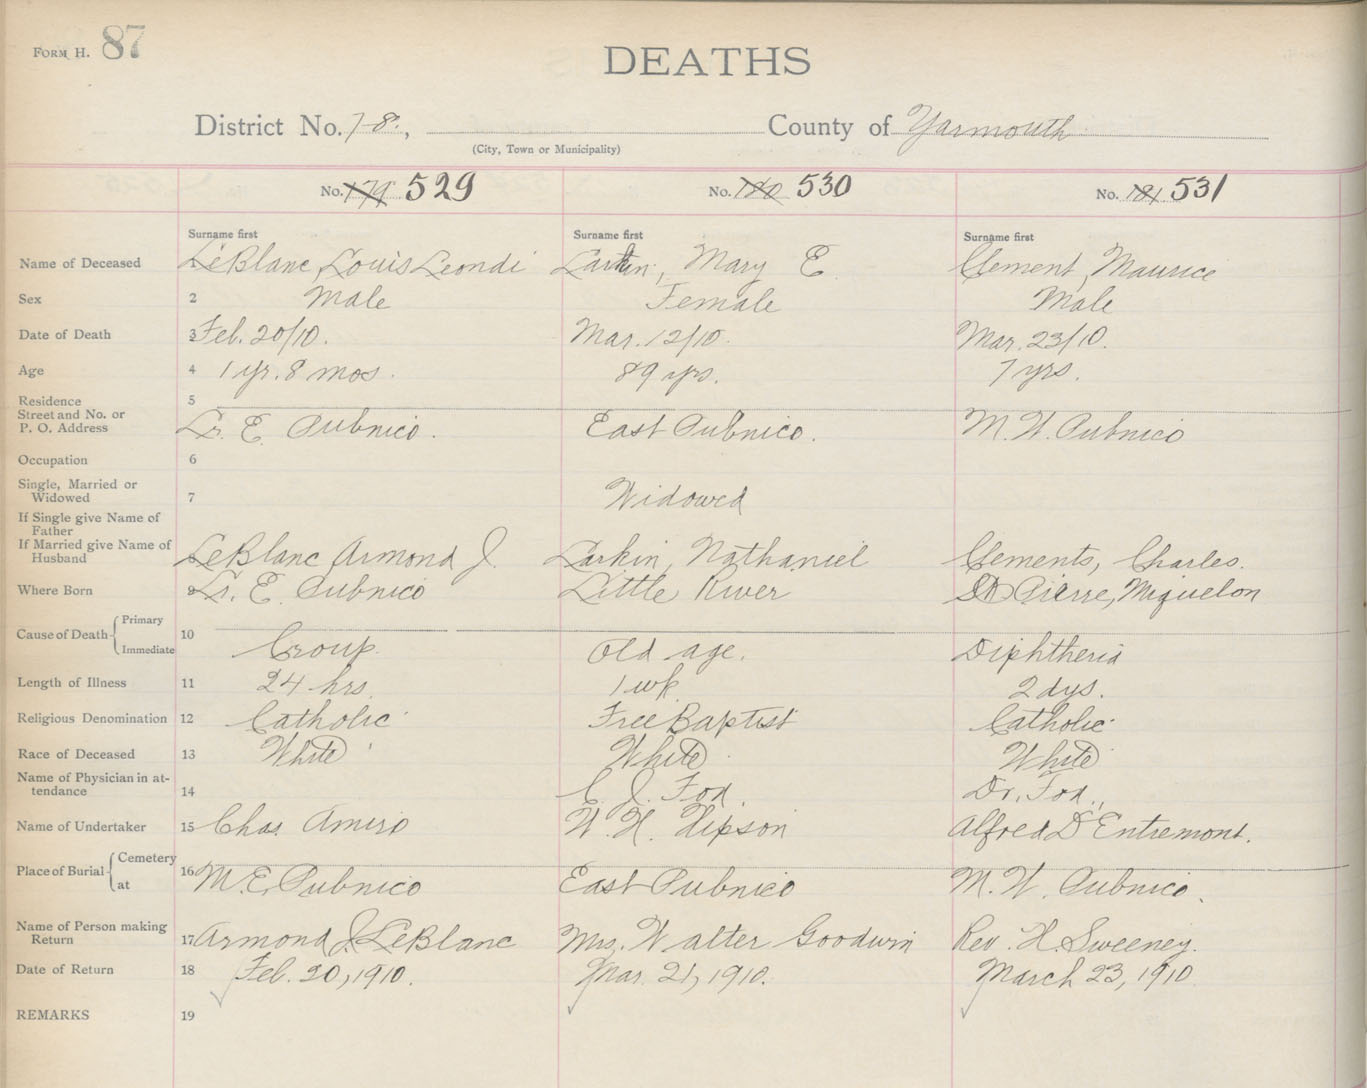 FORM H. 87
DEATHS
District No. 7-8, County of Yarmouth
(City, Town or Municipality)
No. 179 529 No. 180 530 No. 181 531
Surname first Surname first Surname first
Name of Deceased 1 LeBlanc, Louis Leondi Larkin, Mary E Clement, Maurice
Sex 2 Male Female Male
Date of Death 3 Feb. 20/10. Mar. 12/10. Mar. 23/10.
Age 4 1 yr. 8 mos. 89 yrs. 7 yrs.
Residence 5
Street and No. or
P. O. Address Lr. E. Pubnico. East Pubnico. M. W. Pubnico
Occupation 6
Single, Married or
Widowed 7 Widowed
If Single give Name of
Father
If Married give Name of
Husband 8 LeBlanc Armond J. Larkin, Nathaniel Clements, Charles.
Where Born 9 Lr. E. Pubnico Little River St Pierre, Miquelon
Primary
Cause of Death 10
Immediate Croup Old age. Diphtheria
Length of Illness 11 24 hrs. 1 wk 2 dys.
Religious Denomination 12 Catholic Free Baptist Catholic
Race of Deceased 13 White White White
Name of Physician in at-
tendance 14 C. J. Fox. Dr. Fox.
Name of Undertaker 15 Chas. Amiro W. H. Hipson Alfred D'Entremont.
Cemetery
Place of Burial 16
at M. E. Pubnico East Pubnico M. W. Pubnico.
Name of Person making
Return 17 Armond J. LeBlanc Mrs. Walter Goodwin Rev. H. Sweeney.
Date of Return 18 Feb. 20, 1910. Mar. 21, 1910. March 23, 1910
REMARKS 19